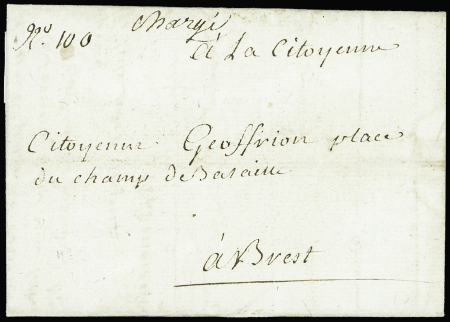 chargé
No 100
à La Citoyenne
Citoyenne Geoffrion place
du champ de Bataille
à Brest